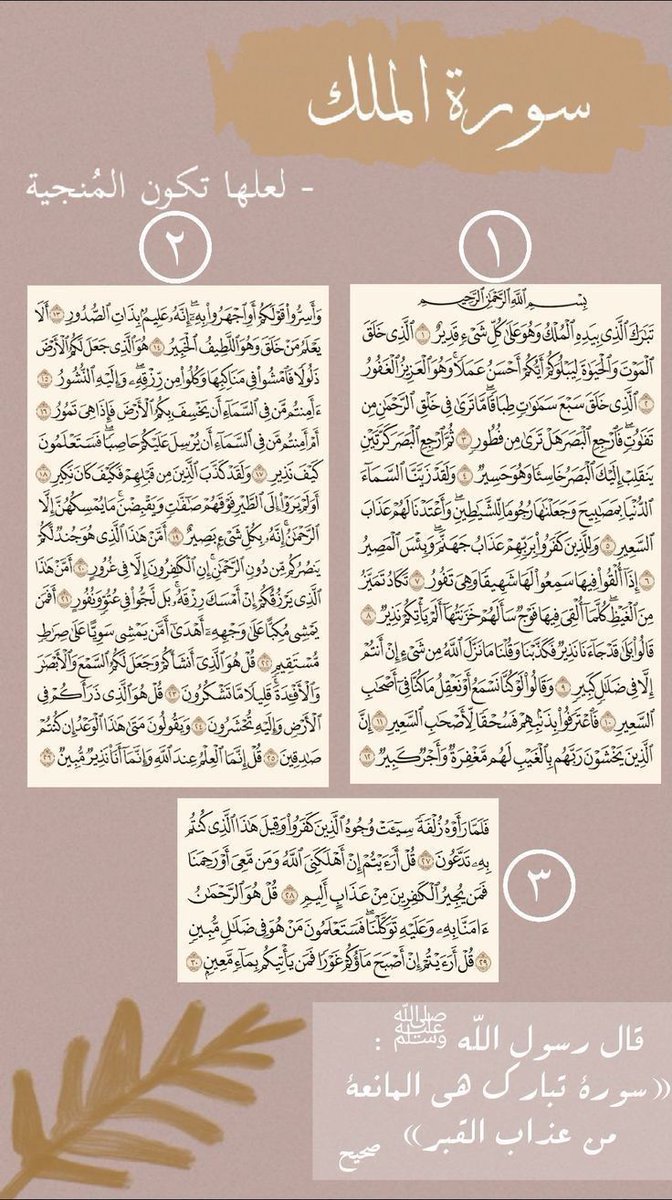 سورة الملك
- لعلها تكون المُنجية
١
بِسْمِ اللَّهِ الرَّحْمَٰنِ الرَّحِيمِ
تَبَارَكَ الَّذِي بِيَدِهِ الْمُلْكُ وَهُوَ عَلَىٰ كُلِّ شَيْءٍ قَدِيرٌ ١ الَّذِي خَلَقَ
الْمَوْتَ وَالْحَيَاةَ لِيَبْلُوَكُمْ أَيُّكُمْ أَحْسَنُ عَمَلًا ۚ وَهُوَ الْعَزِيزُ الْغَفُورُ
٢ الَّذِي خَلَقَ سَبْعَ سَمَاوَاتٍ طِبَاقًا ۖ مَّا تَرَىٰ فِي خَلْقِ الرَّحْمَٰنِ مِن
تَفَاوُتٍ ۖ فَارْجِعِ الْبَصَرَ هَلْ تَرَىٰ مِن فُطُورٍ ٣ ثُمَّ ارْجِعِ الْبَصَرَ كَرَّتَيْنِ
يَنقَلِبْ إِلَيْكَ الْبَصَرُ خَاسِئًا وَهُوَ حَسِيرٌ ٤ وَلَقَدْ زَيَّنَّا السَّمَاءَ
الدُّنْيَا بِمَصَابِيحَ وَجَعَلْنَاهَا رُجُومًا لِّلشَّيَاطِينِ ۖ وَأَعْتَدْنَا لَهُمْ عَذَابَ
السَّعِيرِ ٥ وَلِلَّذِينَ كَفَرُوا بِرَبِّهِمْ عَذَابُ جَهَنَّمَ ۖ وَبِئْسَ الْمَصِيرُ
٦ إِذَا أُلْقُوا فِيهَا سَمِعُوا لَهَا شَهِيقًا وَهِيَ تَفُورُ ٧ تَكَادُ تَمَيَّزُ
مِنَ الْغَيْظِ ۖ كُلَّمَا أُلْقِيَ فِيهَا فَوْجٌ سَأَلَهُمْ خَزَنَتُهَا أَلَمْ يَأْتِكُمْ نَذِيرٌ ٨
قَالُوا بَلَىٰ قَدْ جَاءَنَا نَذِيرٌ فَكَذَّبْنَا وَقُلْنَا مَا نَزَّلَ اللَّهُ مِن شَيْءٍ إِنْ أَنتُمْ
إِلَّا فِي ضَلَالٍ كَبِيرٍ ٩ وَقَالُوا لَوْ كُنَّا نَسْمَعُ أَوْ نَعْقِلُ مَا كُنَّا فِي أَصْحَابِ
السَّعِيرِ ١٠ فَاعْتَرَفُوا بِذَنبِهِمْ فَسُحْقًا لِّأَصْحَابِ السَّعِيرِ ١١ إِنَّ
الَّذِينَ يَخْشَوْنَ رَبَّهُم بِالْغَيْبِ لَهُم مَّغْفِرَةٌ وَأَجْرٌ كَبِيرٌ ١٢
٢
وَأَسِرُّوا قَوْلَكُمْ أَوِ اجْهَرُوا بِهِ ۖ إِنَّهُ عَلِيمٌ بِذَاتِ الصُّدُورِ ١٣ أَلَا
يَعْلَمُ مَنْ خَلَقَ وَهُوَ اللَّطِيفُ الْخَبِيرُ ١٤ هُوَ الَّذِي جَعَلَ لَكُمُ الْأَرْضَ
ذَلُولًا فَامْشُوا فِي مَنَاكِبِهَا وَكُلُوا مِن رِّزْقِهِ ۖ وَإِلَيْهِ النُّشُورُ ١٥
ءَأَمِنتُم مَّن فِي السَّمَاءِ أَن يَخْسِفَ بِكُمُ الْأَرْضَ فَإِذَا هِيَ تَمُورُ ١٦
أَمْ أَمِنتُم مَّن فِي السَّمَاءِ أَن يُرْسِلَ عَلَيْكُمْ حَاصِبًا ۖ فَسَتَعْلَمُونَ
كَيْفَ نَذِيرِ ١٧ وَلَقَدْ كَذَّبَ الَّذِينَ مِن قَبْلِهِمْ فَكَيْفَ كَانَ نَكِيرِ ١٨
أَوَلَمْ يَرَوْا إِلَى الطَّيْرِ فَوْقَهُمْ صَافَّاتٍ وَيَقْبِضْنَ ۚ مَا يُمْسِكُهُنَّ إِلَّا
الرَّحْمَٰنُ ۚ إِنَّهُ بِكُلِّ شَيْءٍ بَصِيرٌ ١٩ أَمَّنْ هَٰذَا الَّذِي هُوَ جُندٌ لَّكُمْ
يَنصُرُكُم مِّن دُونِ الرَّحْمَٰنِ ۚ إِنِ الْكَافِرُونَ إِلَّا فِي غُرُورٍ ٢٠ أَمَّنْ هَٰذَا
الَّذِي يَرْزُقُكُمْ إِنْ أَمْسَكَ رِزْقَهُ ۚ بَل لَّجُّوا فِي عُتُوٍّ وَنُفُورٍ ٢١ أَفَمَن
يَمْشِي مُكِبًّا عَلَىٰ وَجْهِهِ أَهْدَىٰ أَمَّن يَمْشِي سَوِيًّا عَلَىٰ صِرَاطٍ
مُّسْتَقِيمٍ ٢٢ قُلْ هُوَ الَّذِي أَنشَأَكُمْ وَجَعَلَ لَكُمُ السَّمْعَ وَالْأَبْصَارَ
وَالْأَفْئِدَةَ ۖ قَلِيلًا مَّا تَشْكُرُونَ ٢٣ قُلْ هُوَ الَّذِي ذَرَأَكُمْ فِي
الْأَرْضِ وَإِلَيْهِ تُحْشَرُونَ ٢٤ وَيَقُولُونَ مَتَىٰ هَٰذَا الْوَعْدُ إِن كُنتُمْ
صَادِقِينَ ٢٥ قُلْ إِنَّمَا الْعِلْمُ عِندَ اللَّهِ وَإِنَّمَا أَنَا نَذِيرٌ مُّبِينٌ ٢٦
٣
فَلَمَّا رَأَوْهُ زُلْفَةً سِيئَتْ وُجُوهُ الَّذِينَ كَفَرُوا وَقِيلَ هَٰذَا الَّذِي كُنتُم
بِهِ تَدَّعُونَ ٢٧ قُلْ أَرَأَيْتُمْ إِنْ أَهْلَكَنِيَ اللَّهُ وَمَن مَّعِيَ أَوْ رَحِمَنَا
فَمَن يُجِيرُ الْكَافِرِينَ مِنْ عَذَابٍ أَلِيمٍ ٢٨ قُلْ هُوَ الرَّحْمَٰنُ
ءَامَنَّا بِهِ وَعَلَيْهِ تَوَكَّلْنَا ۖ فَسَتَعْلَمُونَ مَنْ هُوَ فِي ضَلَالٍ مُّبِينٍ
٢٩ قُلْ أَرَأَيْتُمْ إِنْ أَصْبَحَ مَاؤُكُمْ غَوْرًا فَمَن يَأْتِيكُم بِمَاءٍ مَّعِينٍ ٣٠
قال رسول اللّه ﷺ :
((سورة تبارك هي المانعة
من عذاب القبر))
صحيح